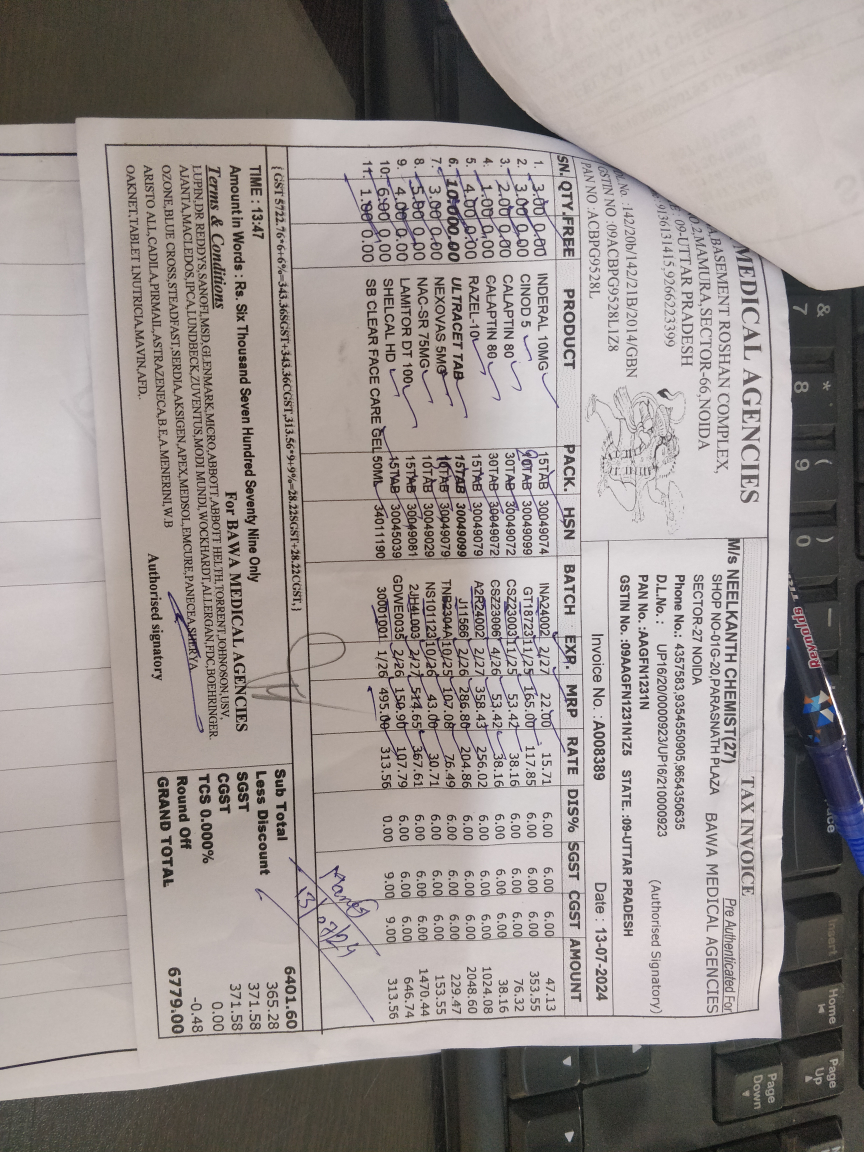 MEDICAL AGENCIES
BASEMENT ROSHAN COMPLEX,
MAMURA,SECTOR-66,NOIDA
09-UTTAR PRADESH
9136131415,9266223399
142/20b/142/21B/2014/GBN
GSTIN NO :09ACBPG9528L1Z8
PAN NO :ACBPG9528L
TAX INVOICE
Pre Authenticated For
M/s NEELKANTH CHEMIST(27) BAWA MEDICAL AGENCIES
SHOP NO-01G-20,PARASNATH PLAZA
SECTOR-27 NOIDA
Phone No.: 4357583,9354550905,9654350635
D.L.No. : UP16/20/0000923/UP16/210000923
PAN No. :AAGFN1231N (Authorised Signatory)
GSTIN No. :09AAGFN1231N1Z5 STATE. :09-UTTAR PRADESH
Invoice No. : A008389 Date : 13-07-2024
SN. QTY.FREE PRODUCT PACK. HSN BATCH EXP. MRP RATE DIS% SGST CGST AMOUNT
1. 3.00 0.00 INDERAL 10MG 15TAB 30049074 INA24002 2/27 22.00 15.71 6.00 6.00 6.00 47.13
2. 3.00 0.00 CINOD 5 TAB 30049099 GT18723 11/25 165.00 117.85 6.00 6.00 6.00 353.55
3. 2.00 0.00 CALAPTIN 80 30TAB 30049072 CSZ23003 11/25 53.42 38.16 6.00 6.00 6.00 76.32
4. 1.00 0.00 CALAPTIN 80 30TAB 30049072 CSZ23006 4/26 53.42 38.16 6.00 6.00 6.00 38.16
5. 4.00 0.00 RAZEL-10 15TAB 30049079 A2R24002 2/27 358.43 256.02 6.00 6.00 6.00 1024.08
6. 10.00 0.00 ULTRACET TAB 15TAB 30049099 J11586 2/26 286.80 204.86 6.00 6.00 6.00 2048.60
7. 3.00 0.00 NEXOVAS 5MG 10TAB 30049079 TNB2304A 10/25 107.08 76.49 6.00 6.00 6.00 229.47
8. 5.00 0.00 NAC-SR 75MG 10TAB 30049029 NS101123 10/26 43.00 30.71 6.00 6.00 6.00 153.55
9. 4.00 0.00 LAMITOR DT 100 15TAB 30049081 2/27 514.65 367.61 6.00 6.00 6.00 1470.44
10. 6.00 0.00 SHELCAL HD 15TAB 30045039 GDWE0035 2/26 150.90 107.79 6.00 6.00 6.00 646.74
11. 1.00 0.00 SB CLEAR FACE CARE GEL 50ML 34011190 30001001 1/26 495.00 313.56 0.00 9.00 9.00 313.56
13/07/24
{ GST 5722.76*6+6%=343.36SGST+343.36CGST,313.56*9+9%=28.22SGST+28.22CGST,}
TIME : 13:47
Amount in Words : Rs. Six Thousand Seven Hundred Seventy Nine Only
For BAWA MEDICAL AGENCIES
Terms & Conditions
LUPIN,DR REDDYS,SANOFI,MSD,GLENMARK,MICRO,ABBOTT,ABBOTT HELTH,TORRENT,JOHNSON,USV,
AJANTA,MACLEDOS,IPCA,LUNDBECK,ZUVENTUS,MODI MUNDI,WOCKHARDT,ALLERGAN,FDC,BOEHRINGER.
OZONE,BLUE CROSS,STEADFAST,SERDIA,AKSIGEN,APEX,MEDSOL,EMCURE,PANECEA,SHERYA
ARISTO ALL,CADILA,PIRMAIL,ASTRAZENECA,B.E,A.MENERINI,W.B
OAKNET,TABLET I,NUTRICIA,MAVIN,AFD.
Authorised signatory
Sub Total 6401.60
Less Discount 365.28
SGST 371.58
CGST 371.58
TCS 0.000% 0.00
Round Off -0.48
GRAND TOTAL 6779.00
Reynolds
&
7
*
8
(
9
)
0
Insert
Home
Page
Up
Page
Down